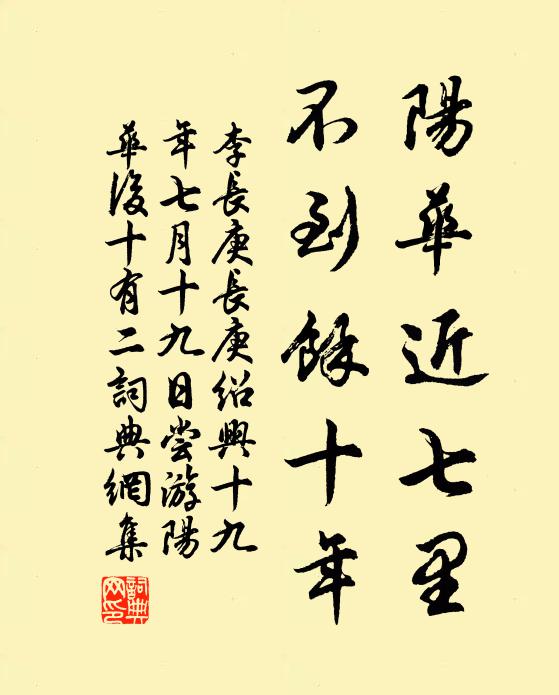 陽華近七里
不到餘十年
李長庚長庚紹興十九
年七月十九日嘗游陽
華後十有二詞典網集
詞典网印